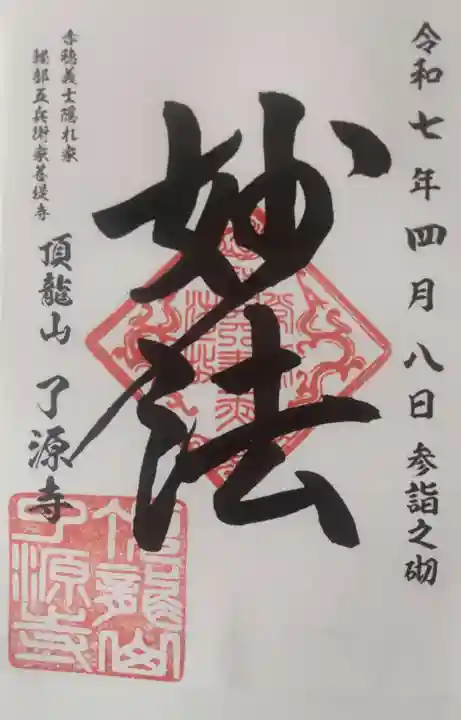 令和七年四月八日 参詣之砌
妙法
赤穂義士隠れ家
軽部五兵衛家菩提寺
頂龍山 了源寺
頂龍山
了源寺